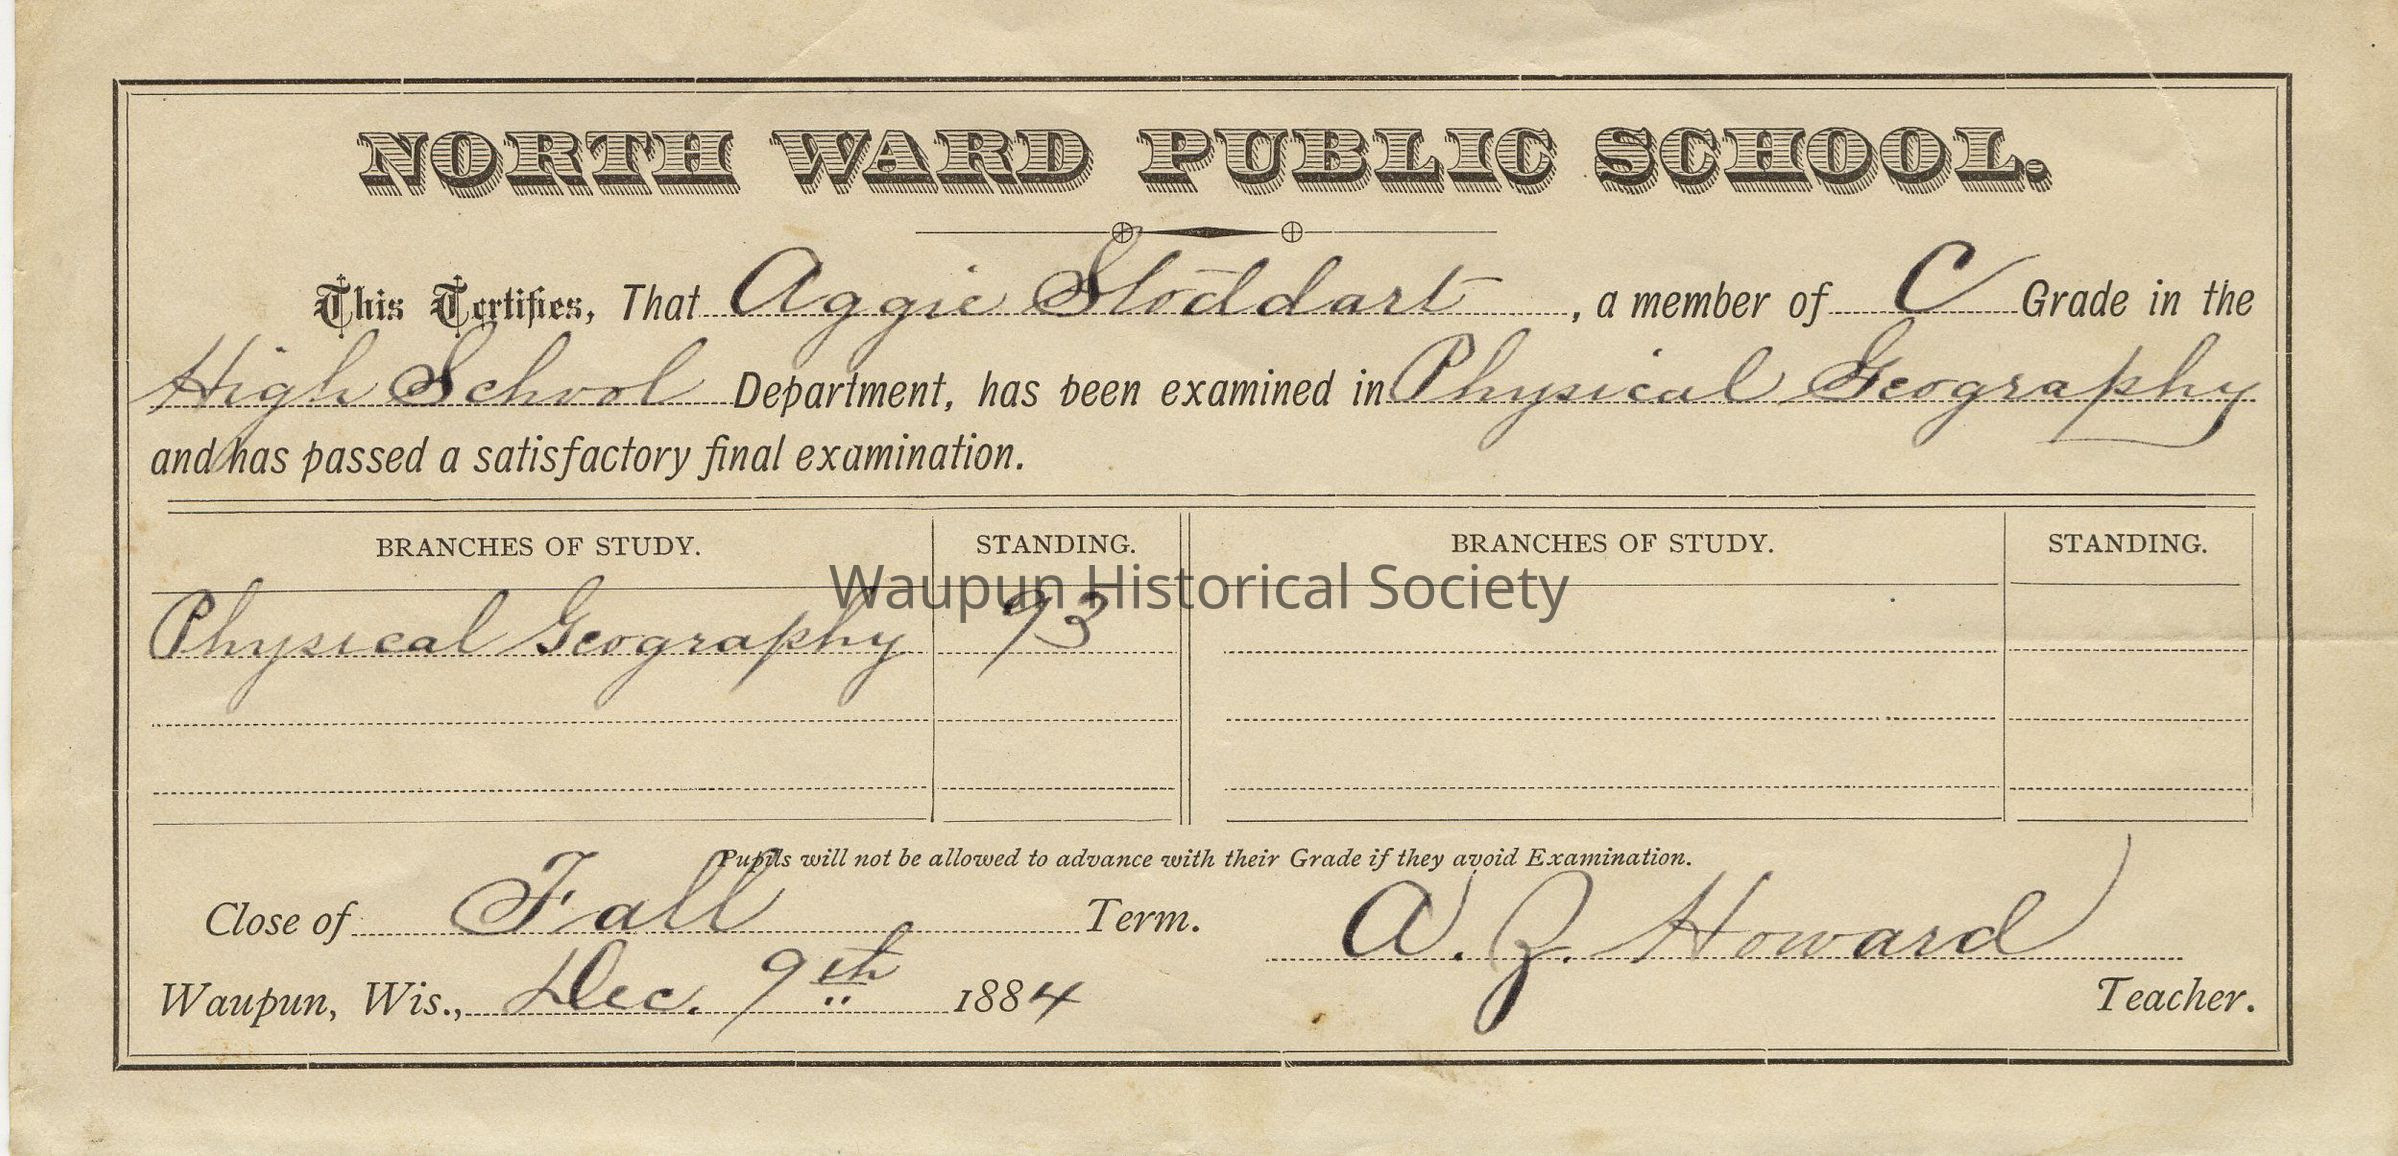 NORTH WARD PUBLIC SCHOOL.
This Certifies, That Aggie Stoddart, a member of C Grade in the
High School Department, has been examined in Physical Geography
and has passed a satisfactory final examination.
BRANCHES OF STUDY. STANDING. BRANCHES OF STUDY. STANDING.
Waupun Historical Society
Physical Geography 93
Pupils will not be allowed to advance with their Grade if they avoid Examination.
Close of Fall Term. A. Z. Howard
Waupun, Wis., Dec. 9th 1884 Teacher.